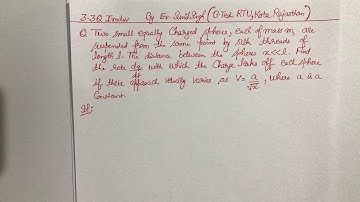 3.3Q Irodov By Er. Sunil Singh (B.Tech RTU, Kota, Rajasthan)
Q Two small equally Charged sphere, each of mass m, are
suspended from the same point by silk threads of
length l. The distance between the sphere x<<l. Find
the rate dq/dt with which the Charge leaks off each sphere
if their approach velocity varies as V = a/√x, where a is a
Constant.